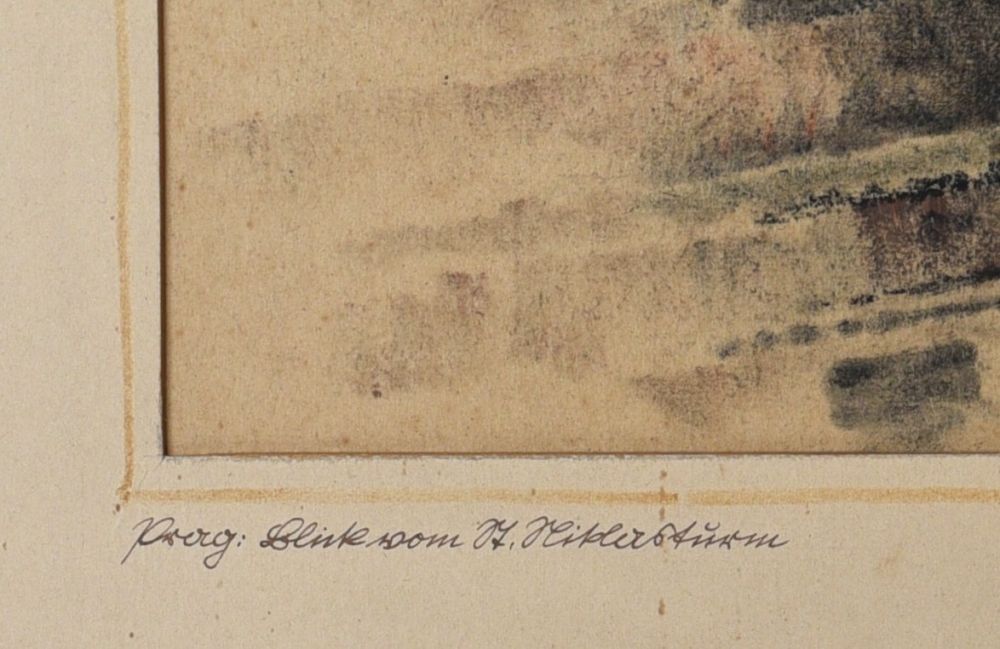 Prag: Blick vom St. Niklasturm